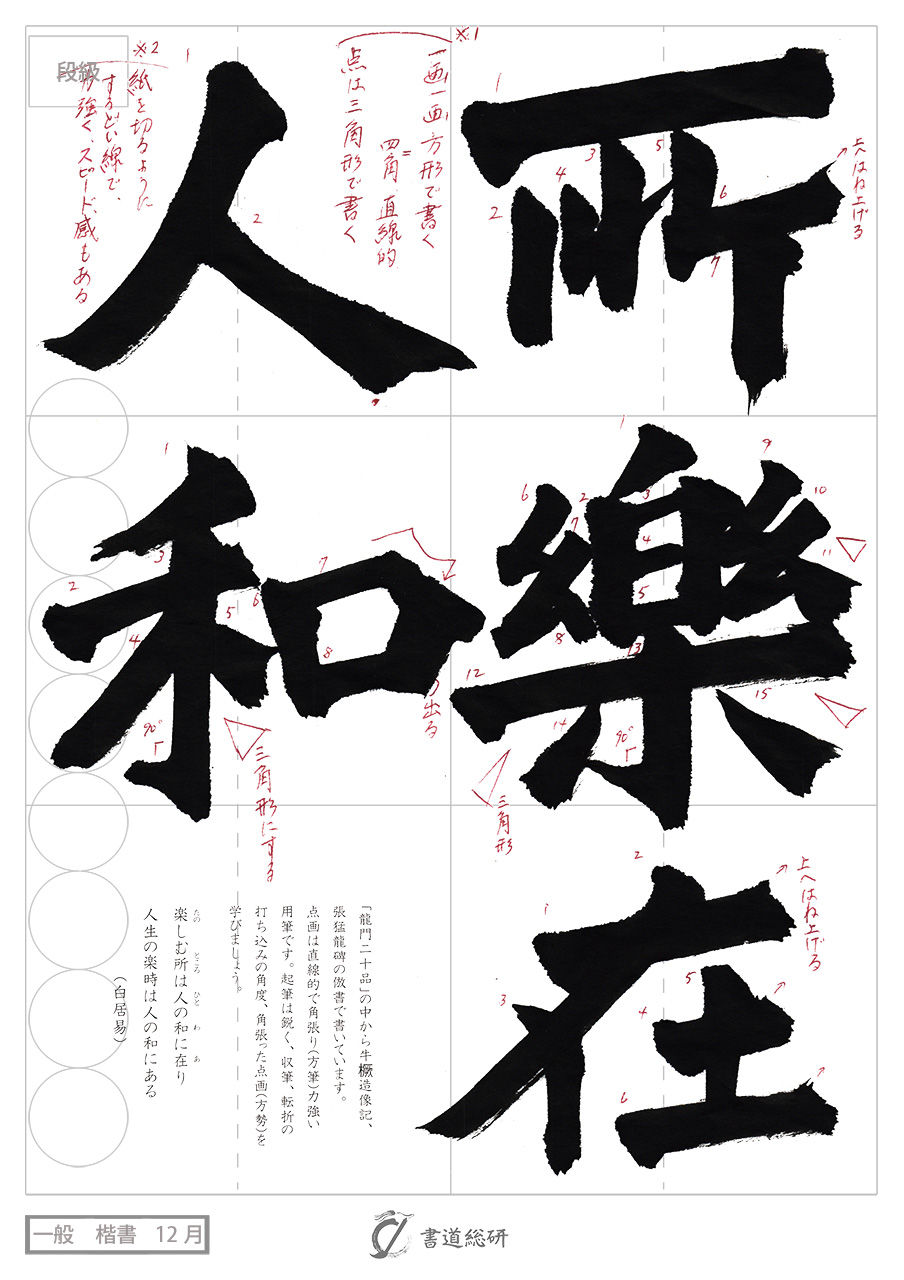 所樂在
人和
※1
一画一画方形で書く
四角=直線的
点は三角形で書く
※2
紙を切るように
するどい線で、
力強く、スピード感もある
段級
上へはね上げる
三角形
出る
90°
三角形にする
90°
上へはね上げる
「龍門二十品」の中から牛橛造像記、
張猛龍碑の倣書で書いています。
点画は直線的で角張り(方筆)力強い
用筆です。起筆は鋭く、収筆、転折の
打ち込みの角度、角張った点画(方勢)を
学びましょう。
楽しむ所は人の和に在り
たの ところ ひと わ あ
人生の楽時は人の和にある
(白居易)
一般 楷書 12月
書道総研